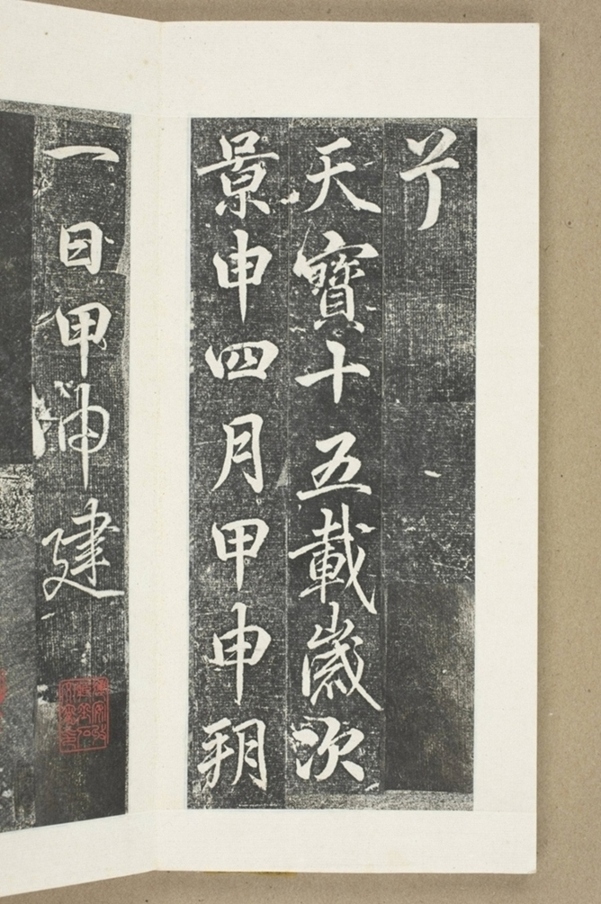 丫
天寶十五載歲次
景申四月甲申朔
一日甲申建